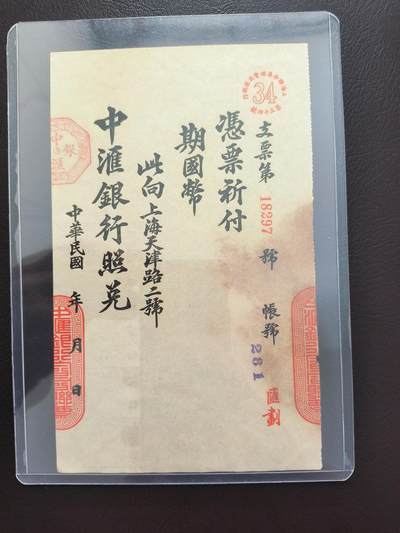 34
支票第 18297 號 帳號 281
匯劃
憑票祈付
期國幣
此向上海天津路二號
中滙銀行照兌
中華民國 年 月 日